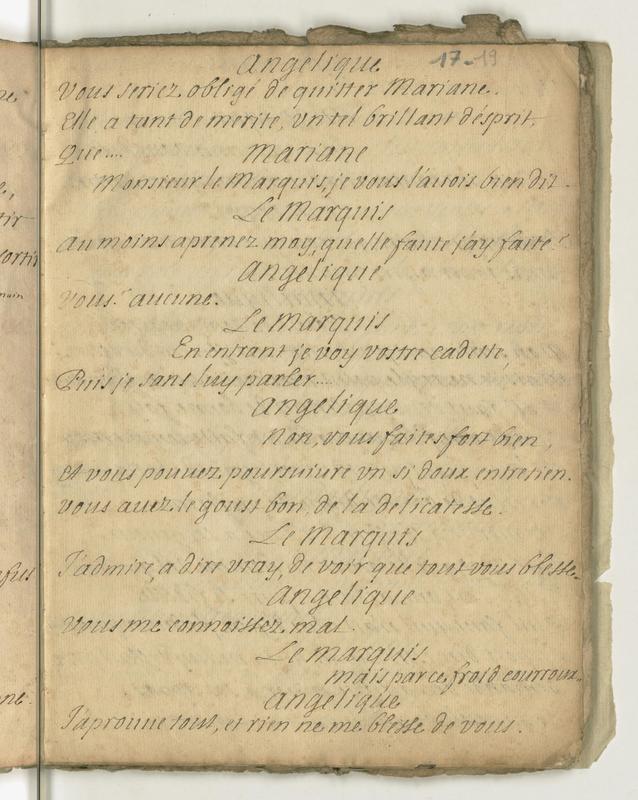 17-19
Angelique
Vous seriez obligé de quitter Mariane.
Elle a tant de merite, vn tel brillant d'ésprit.
Que....
Mariane
Monsieur le Marquis, je vous l'auois bien dit.
Le Marquis
Au moins aprenez moy, quelle faute j'ay faitte?
Angélique
Vous? aucune.
Le Marquis
En entrant je voy vostre cadette,
Puis je sans luy parler....
Angelique
Non, vous faites fort bien,
Et vous pouuez poursuiure vn si doux entretien.
Vous auez le goust bon, de la delicatesse.
Le Marquis
J'admire, a dire vray, de voir que tout vous blesse.
Angelique
Vous me connoissez mal.
Le Marquis
Mais par ce froid courroux..
Angelique
J'aprouue tout, et rien ne me blesse de vous.